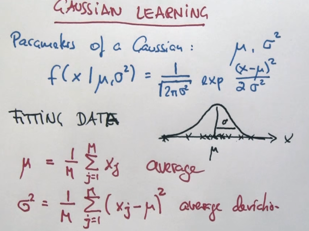 GAUSSIAN LEARNING
Parameters of a Gaussian: μ, σ²
f(x|μ,σ²) = 1/√2πσ² exp (x-μ)²/2σ²
FITTING DATA
σ
x
μ
μ = 1/M ∑_{j=1}^{M} xj average
σ² = 1/M ∑_{j=1}^{M} (xj-μ)² average